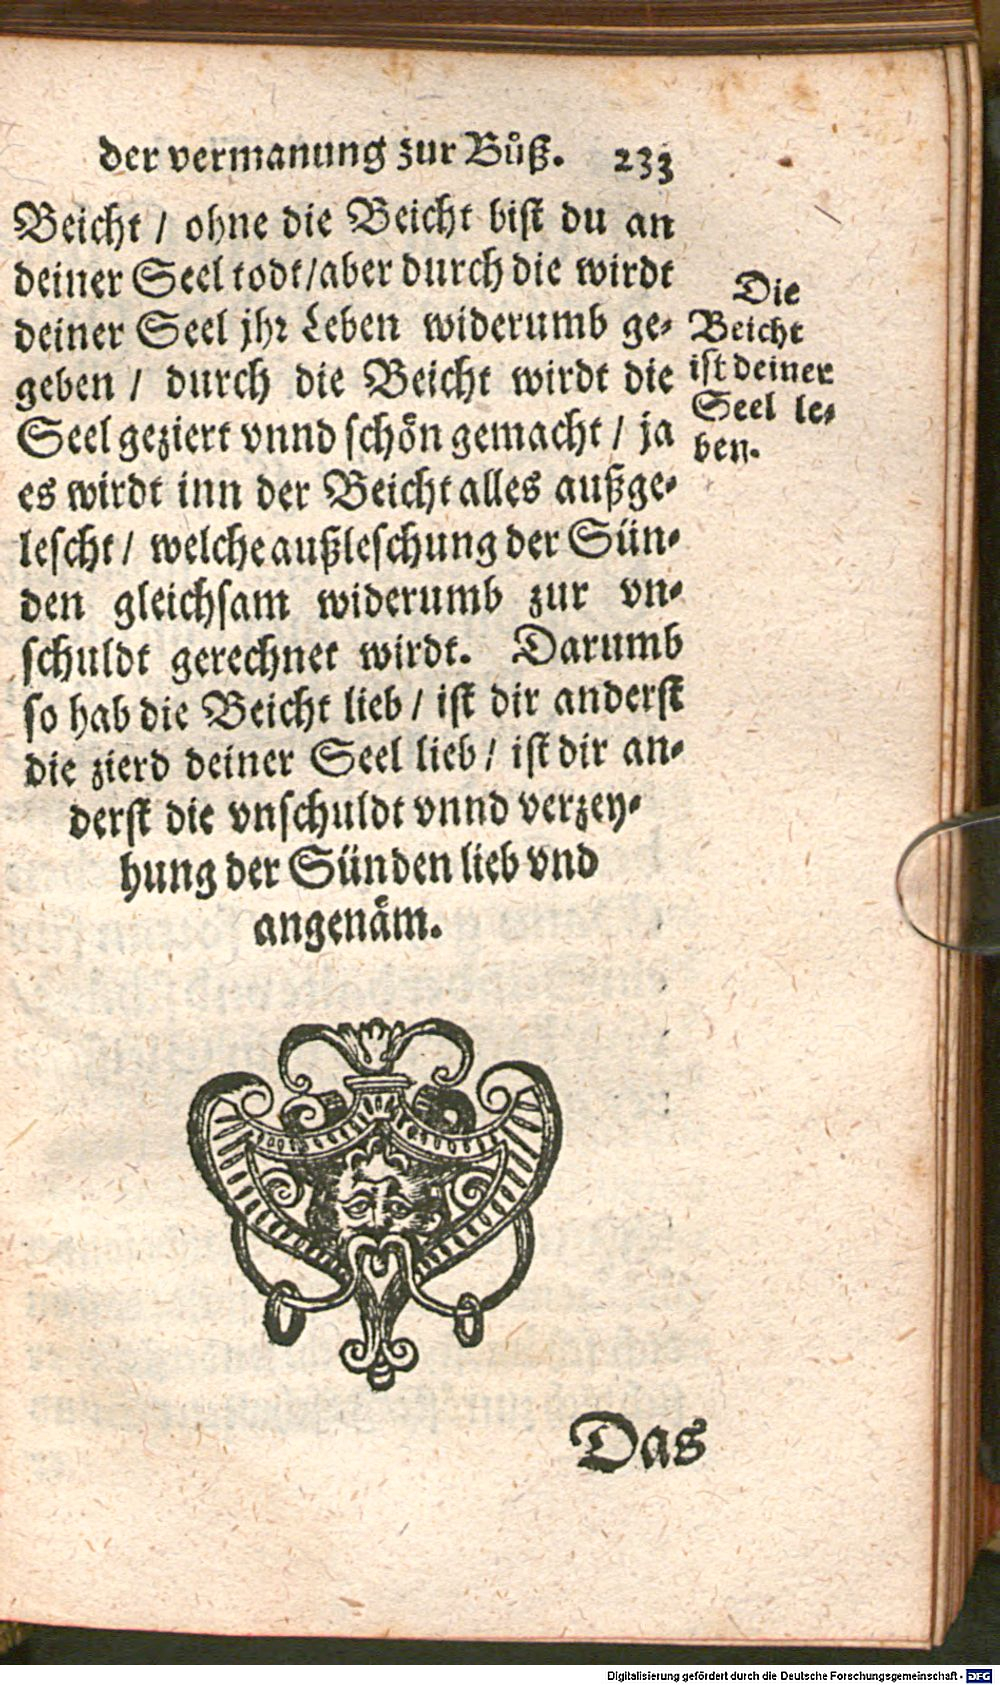 der vermanung zur Bůß. 233
Beicht / ohne die Beicht bist du an
deiner Seel todt/aber durch die wirdt
deiner Seel jhr Leben widerumb ge-
geben / durch die Beicht wirdt die
Seel geziert vnnd schön gemacht / ja
es wirdt inn der Beicht alles außge-
lescht / welche außleschung der Sün-
den gleichsam widerumb zur vn-
schuldt gerechnet wirdt. Darumb
so hab die Beicht lieb / ist dir anderst
die zierd deiner Seel lieb / ist dir an-
derst die vnschuldt vnnd verzey-
hung der Sünden lieb vnd
angenäm.
Die
Beicht
ist deiner
Seel le-
ben.
Das
Digitalisierung gefördert durch die Deutsche Forschungsgemeinschaft - DFG